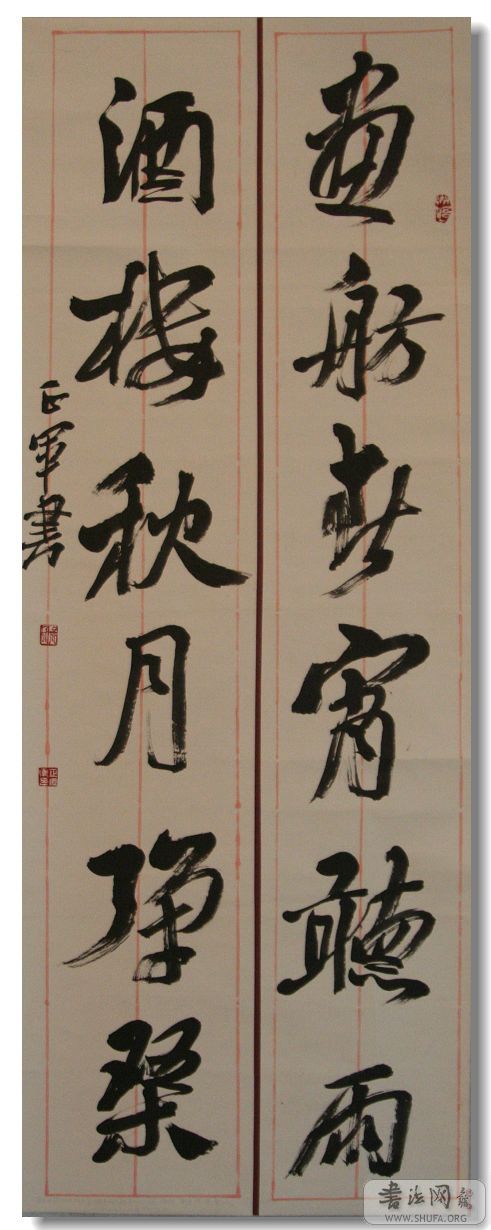 畫舫春宵聽雨
酒楼秋月弹琴
正軍书
书法网
WWW.SHUFA.ORG